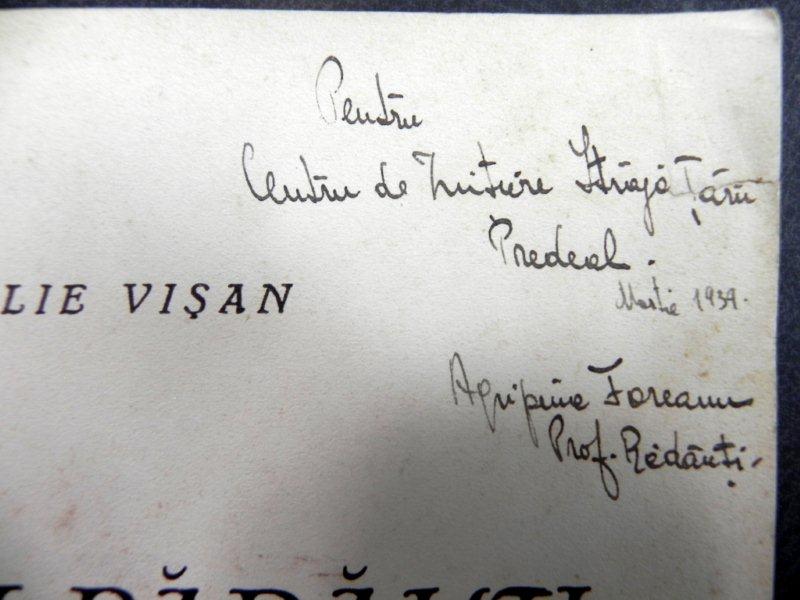 Pentru
Centru de Inițiere Străja Țării
Predeal.
Martie 1939.
LIE VIȘAN
Agripina Foreanu
Prof. Rădăuți.
RĂDĂUȚI